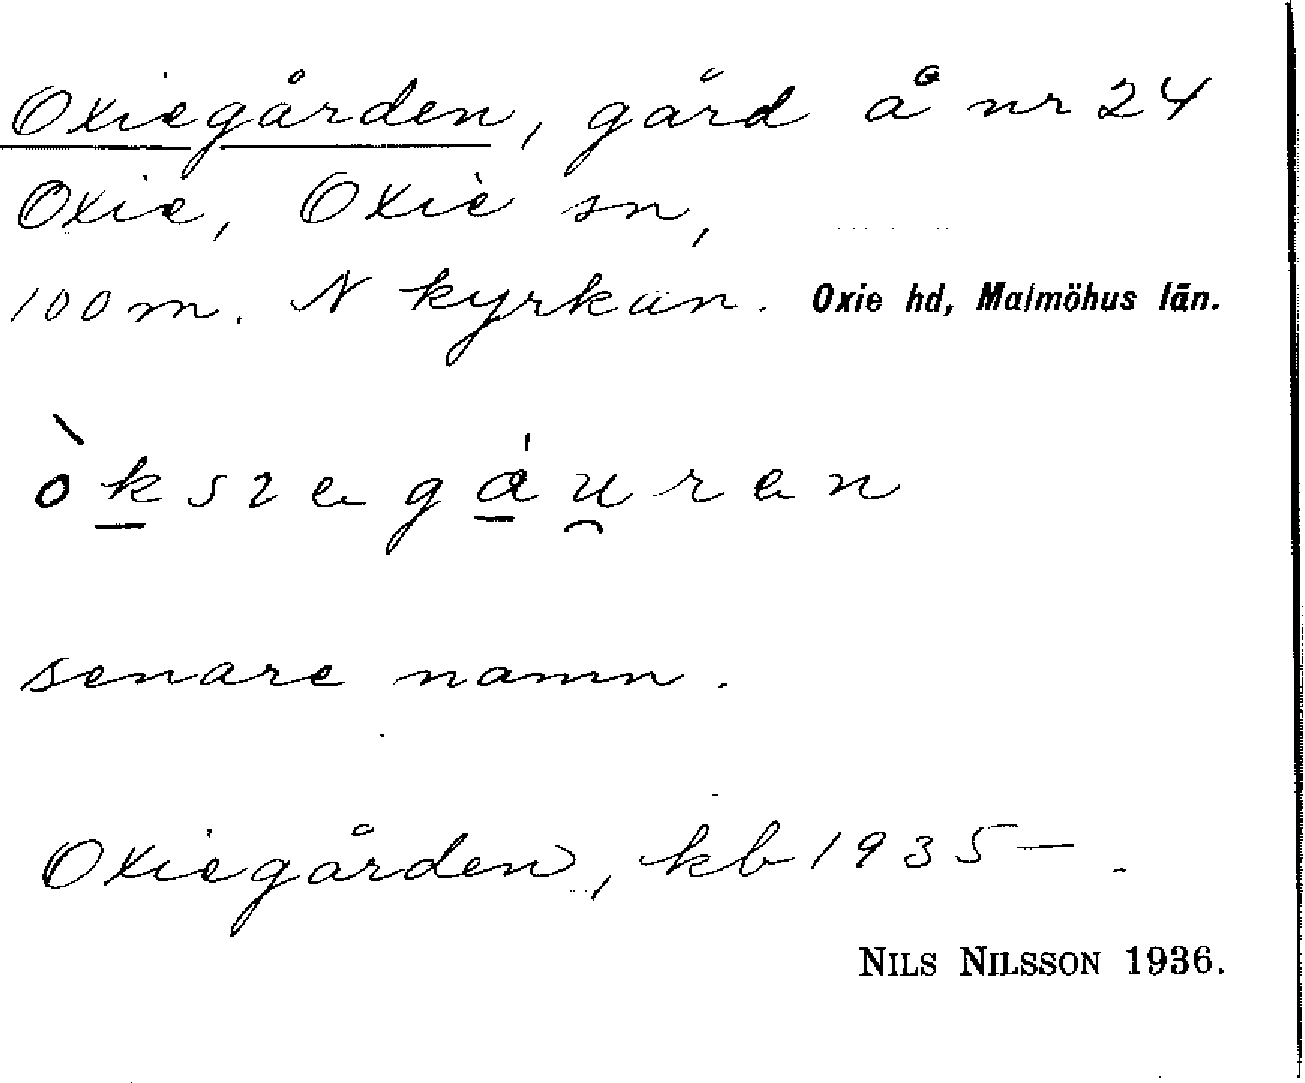 Oxiegården, gård å nr 24
Oxie, Oxie sn,
100 m. N kyrkan. Oxie hd, Malmöhus län.
senare namn.
Oxiegården, kb 1935– .
NILS NILSSON 1936.